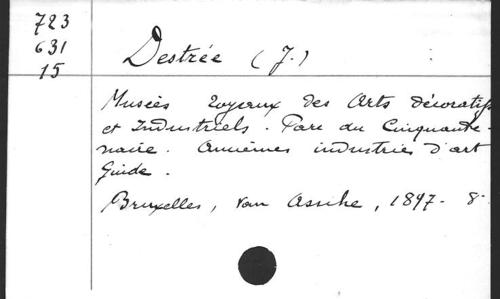 723
631
15
Destrée (J.)
Musées royaux des Arts décoratifs
et Industriels. Parc du Cinquante-
naire. Anciennes industries d'art
Guide.
Bruxelles, van Assche, 1897. 8°